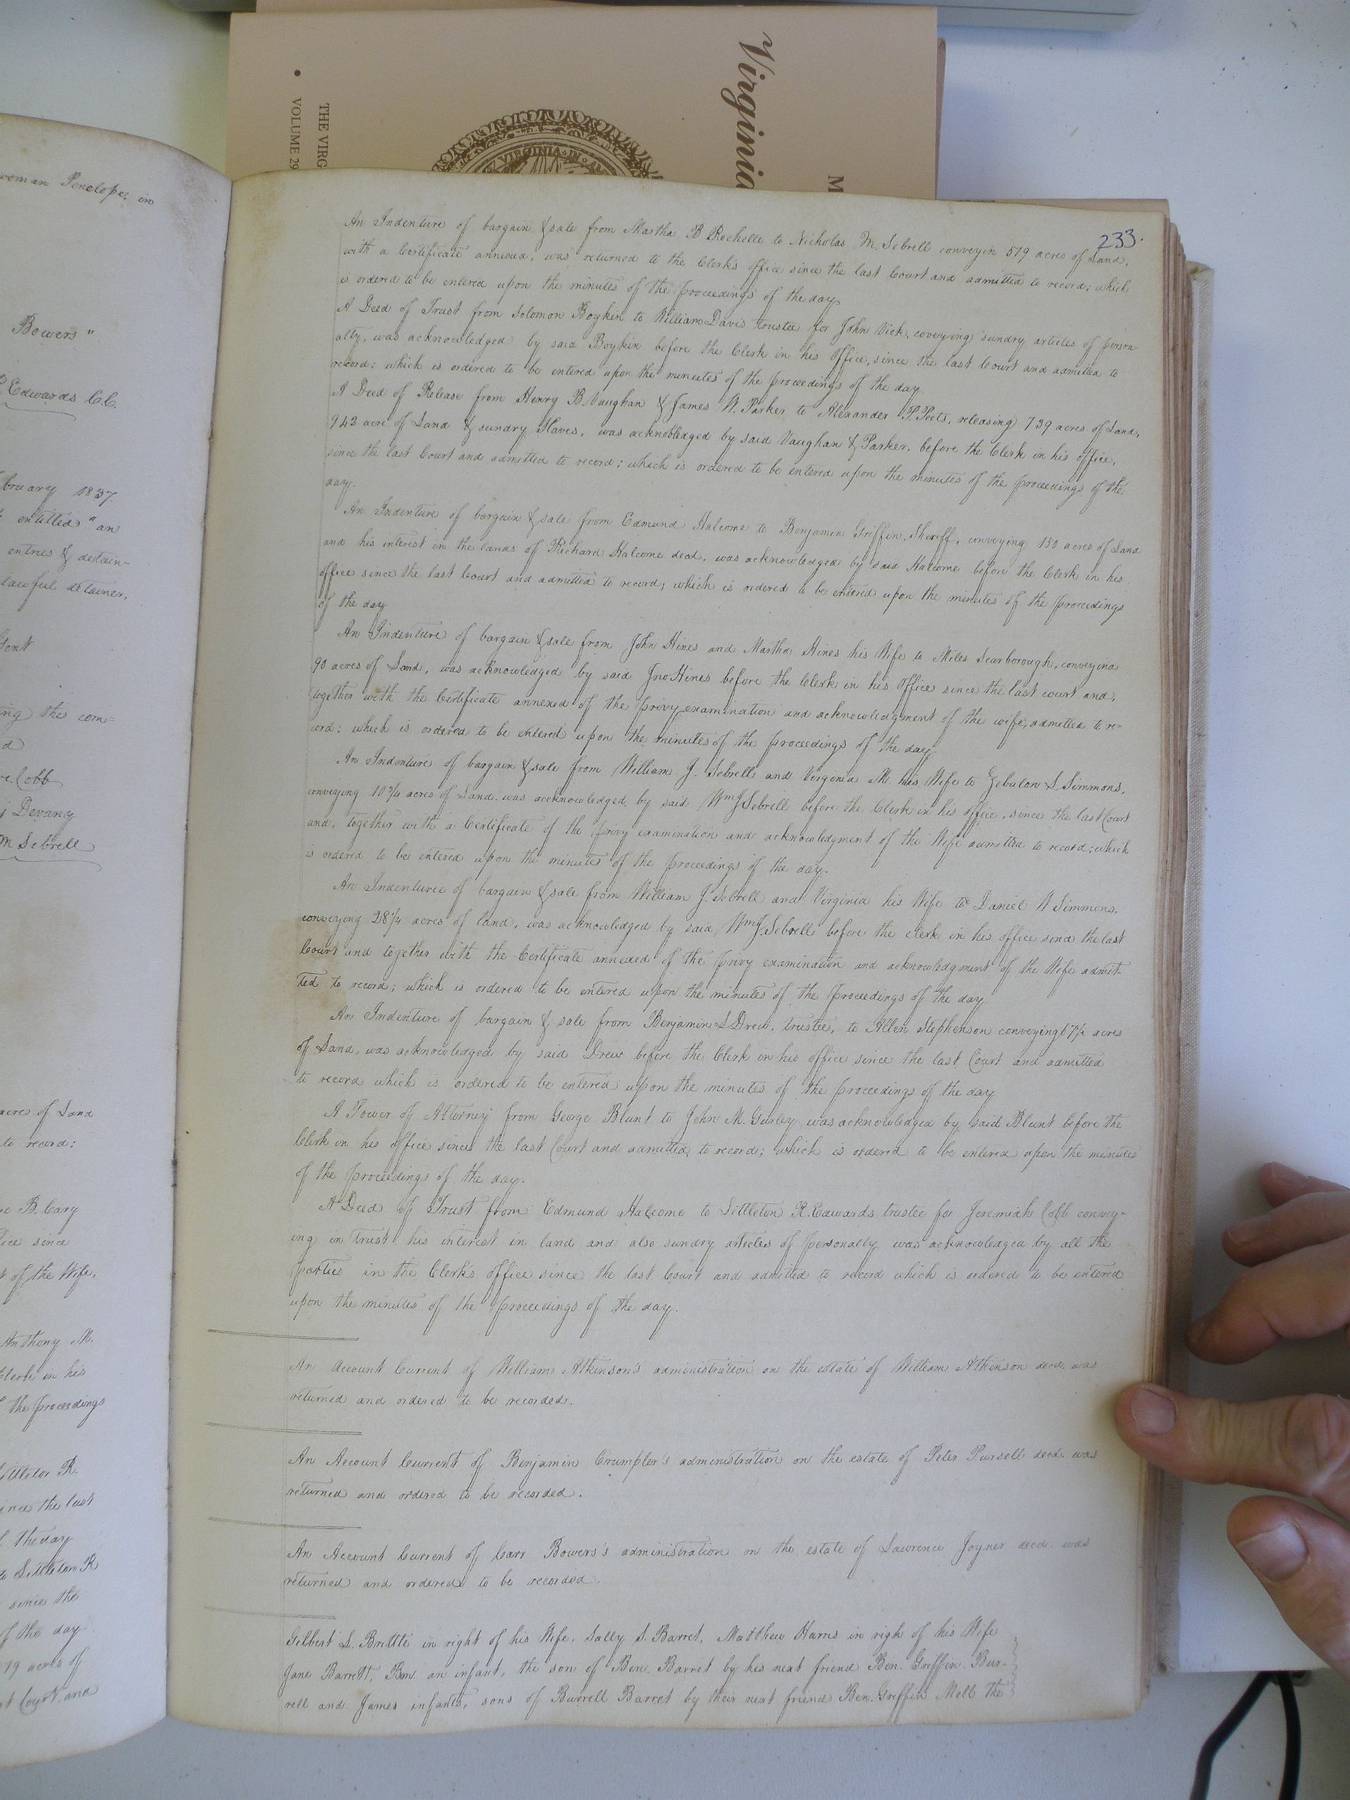 Virginia
M
THE VIRG
VOLUME 29
VIRGINIA
woman Penelope, in
Bowers"
Edwards C.C.
bruary 1837
entitled "an
entries & detain-
lawful detainer,
ing the com=
d
re Cobb
j Devany
M Sebrell
acres of Land
to record;
B. Cary
ice since
of the Wife,
Anthony M.
Clerk in his
the proceedings
Littleton R.
ince the last
the day
to Littleton R
since the
of the day
19 acres of
st Court and
233.
An Indenture of bargain & sale from Martha B Rochelle to Nicholas M. Sebrell conveyin 579 acres of Land,
with a Certificate annexed, was returned to the Clerk's office since the last Court and admitted to record; which
is ordered to be entered upon the minutes of the proceedings of the day
A Deed of Trust from Solomon Boykin to William Davis trustee for John Vick, coveying sundry articles of person
alty, was acknowledged by said Boykin before the Clerk in his Office, since the last Court and admitted to
record; which is ordered to be entered upon the minutes of the proceedings of the day
A Deed of Release from Henry B. Vaughan & James W. Parker to Alexander P. Peets, releasing 739 acres of Land,
942 acre of Land & sundry Slaves, was acknowledged by said Vaughan & Parker, before the Clerk in his office,
since the last Court and admitted to record; which is ordered to be entered upon the minutes of the proceedings of the
day.
An Indenture of bargain & sale from Edmund Halcome to Benjamin Griffin, Sheriff, conveying 130 acres of Land
and his interest in the lands of Richard Halcome decd, was acknowledged by said Halcome before the Clerk in his
office since the last Court and admitted to record; which is ordered to be entered upon the minutes of the proceedings
of the day
An Indenture of bargain & sale from John Hines and Martha Hines his Wife to Miles Scarborough, conveying
90 acres of Land, was acknowledged by said Jno Hines before the Clerk in his Office since the last court and,
together with the Certificate annexed of the privy examination and acknowledgment of the wife, admitted to re-
cord; which is ordered to be entered upon the minutes of the proceedings of the day
An Indenture of bargain & sale from William J. Sebrell and Virginia M his Wife to Zebulon S Simmons,
conveying 10 3/4 acres of Land was acknowledged by said Wm J Sebrell before the Clerk in his office, since the last Court
and, together with a Certificate of the privy examination and acknowledgment of the Wife admitted to record; which
is ordered to be entered upon the minutes of the proceedings of the day.
An Indenture of bargain & sale from William J. Sebrell and Virginia his Wife to Daniel W Simmons,
conveying 28 1/4 acres of land, was acknowledged by said Wm J. Sebrell before the clerk in his office since the last
Court and together with the Certificate annexed of the privy examination and acknowledgment of the Wife admit-
ted to record; which is ordered to be entered upon the minutes of the proceedings of the day
An Indenture of bargain & sale from Benjamin S Drew, trustee, to Allen Stephenson conveying acres
of Land, was acknowledged by said Drew before the Clerk in his office since the last Court and admitted
to record which is ordered to be entered upon the minutes of the proceedings of the day
A Power of Attorney from George Blunt to John M. Gurley was acknowledged by said Blunt before the
Clerk in his office since the last Court and admitted to record; which is ordered to be entered upon the minutes
of the proceedings of the day.
A Deed of Trust from Edmund Halcome to Littleton R. Edwards trustee for Jeremiah Cobb convey-
ing in trust his interest in land and also sundry articles of personalty was acknowledged by all the
parties in the Clerk's office since the last Court and admitted to record which is ordered to be entered
upon the minutes of the proceedings of the day.
An Account Current of William Atkinson's administration on the estate of William Atkinson decd. was
returned and ordered to be recorded.
An Account Current of Benjamin Crumpler's administration on the estate of Peter Pursell decd. was
returned and ordered to be recorded.
An Account Current of Carr Bowers's administration on the estate of Lawrence Joyner decd. was
returned and ordered to be recorded.
Gilbert S. Brittle in right of his Wife, Sally S. Barret, Matthew Harris in righ of his Wife
Jane Barrett, Ben. an infant, the son of Ben. Barret by his next friend Ben. Griffin Bur-
rell and James infants, sons of Burrell Barret by their next friend Ben. Griffin Mell the